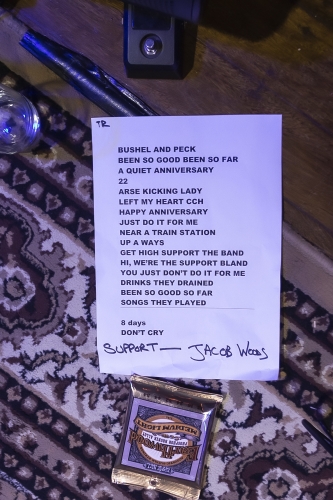 TR
BUSHEL AND PECK
BEEN SO GOOD BEEN SO FAR
A QUIET ANNIVERSARY
22
ARSE KICKING LADY
LEFT MY HEART CCH
HAPPY ANNIVERSARY
JUST DO IT FOR ME
NEAR A TRAIN STATION
UP A WAYS
GET HIGH SUPPORT THE BAND
HI, WE'RE THE SUPPORT BLAND
YOU JUST DON'T DO IT FOR ME
DRINKS THEY DRAINED
BEEN SO GOOD SO FAR
SONGS THEY PLAYED
8 days
DON'T CRY
SUPPORT — JACOB WOODS
MEDIUM LIGHT
ERNIE BALL
EARTHWOOD